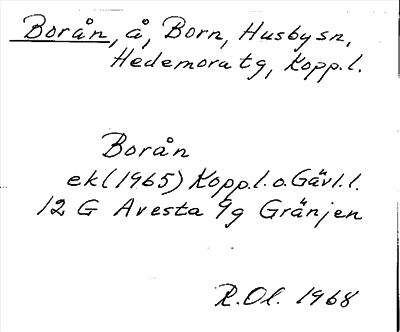 Borån, å, Born, Husby sn,
Hedemora tg, Kopp.l.
Borån
ek (1965) Kopp.l. o. Gävl.l.
12 G Avesta 9g Gränjen
R.Ol. 1968